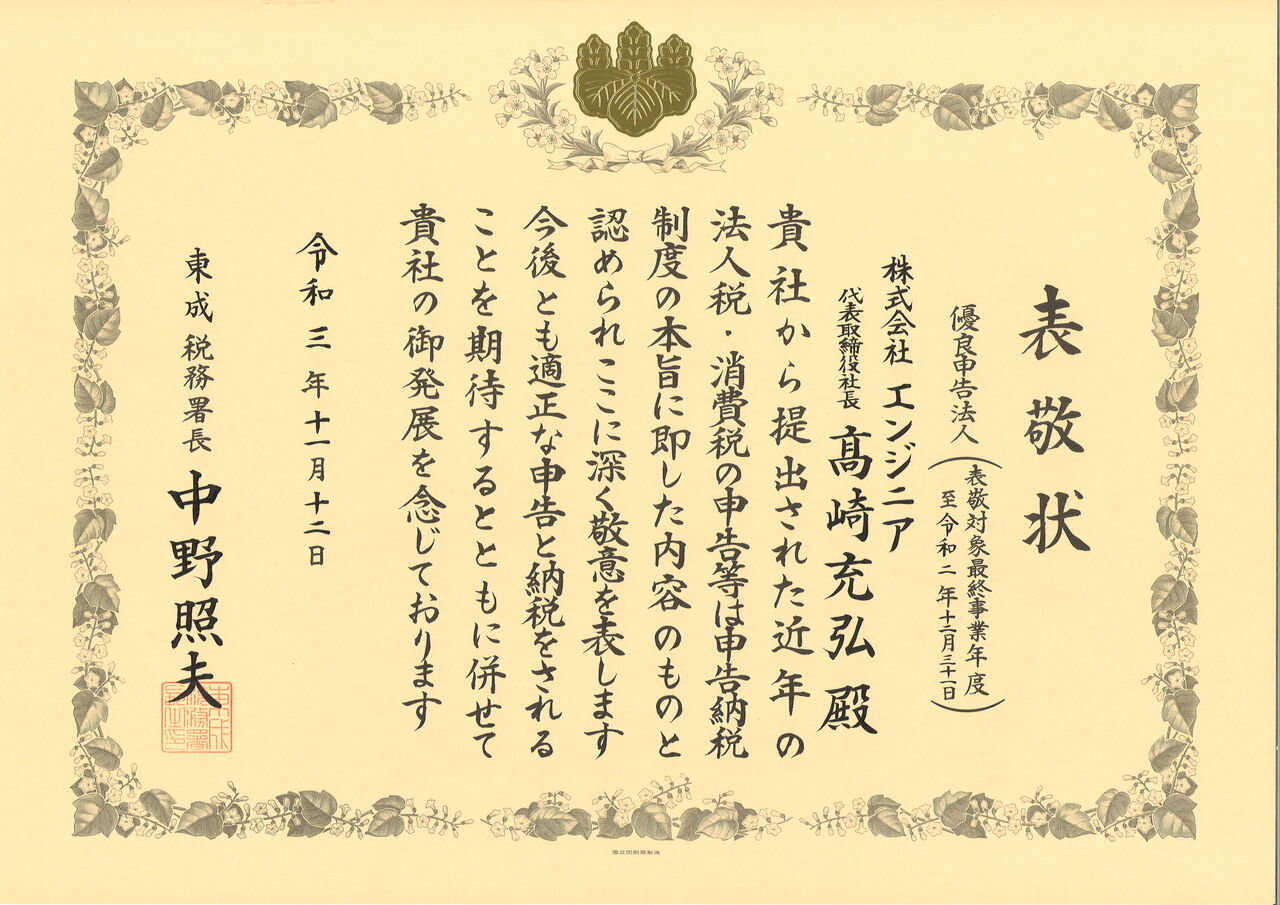 表敬状
優良申告法人
(表敬対象最終事業年度
至令和二年十二月三十一日)
株式会社 エンジニア
代表取締役社長 髙崎充弘 殿
貴社から提出された近年の
法人税・消費税の申告等は申告納税
制度の本旨に即した内容のものと
認められここに深く敬意を表します
今後とも適正な申告と納税をされる
ことを期待するとともに併せて
貴社の御発展を念じております
令和三年十一月十二日
東成税務署長 中野照夫
東成
税務署
長之印
国立印刷局製造